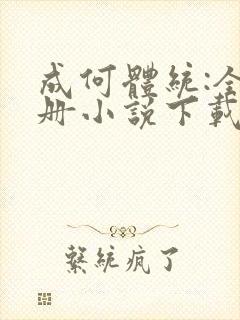 成何體統:全
册小說下載
繫統疯了